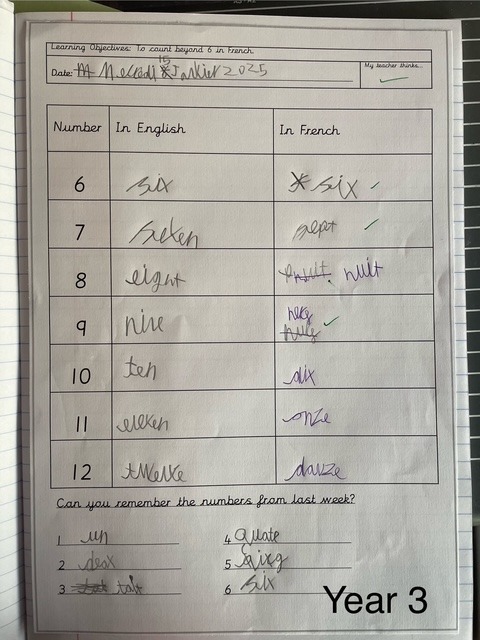 Learning Objectives: To count beyond 6 in French.
Date: 15 Janvier 2025 My teacher thinks...
Number In English In French
6 six six
7 seven sept
8 eight nuit
9 nine
10 ten dix
11 eleven onze
12 twelve dauze
Can you remember the numbers from last week?
1 un 4 quate
2 deax 5
3 6 six
Year 3